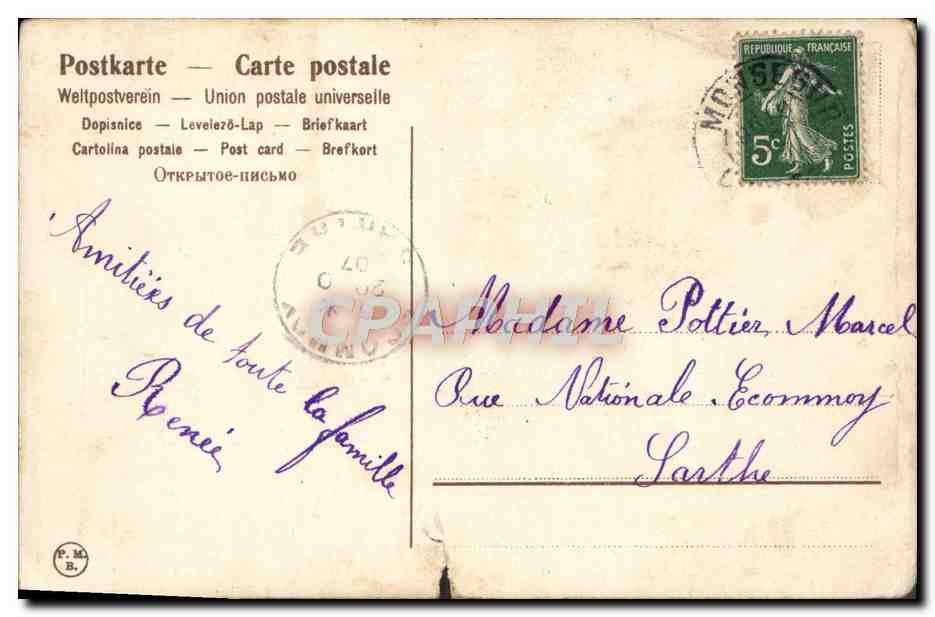 Postkarte — Carte postale
Weltpostverein — Union postale universelle
Dopisnice — Levelező-Lap — Briefkaart
Cartolina postale — Post card — Brefkort
Открытое-письмо
REPUBLIQUE FRANÇAISE
5c
POSTES
Amitiés de toute la famille
Renée
SARTHE
07
20
ECOMMOY
CPAPHIL.COM
Madame Pottier Marcel
Rue Nationale Ecommoy
Sarthe
P. M.
B.